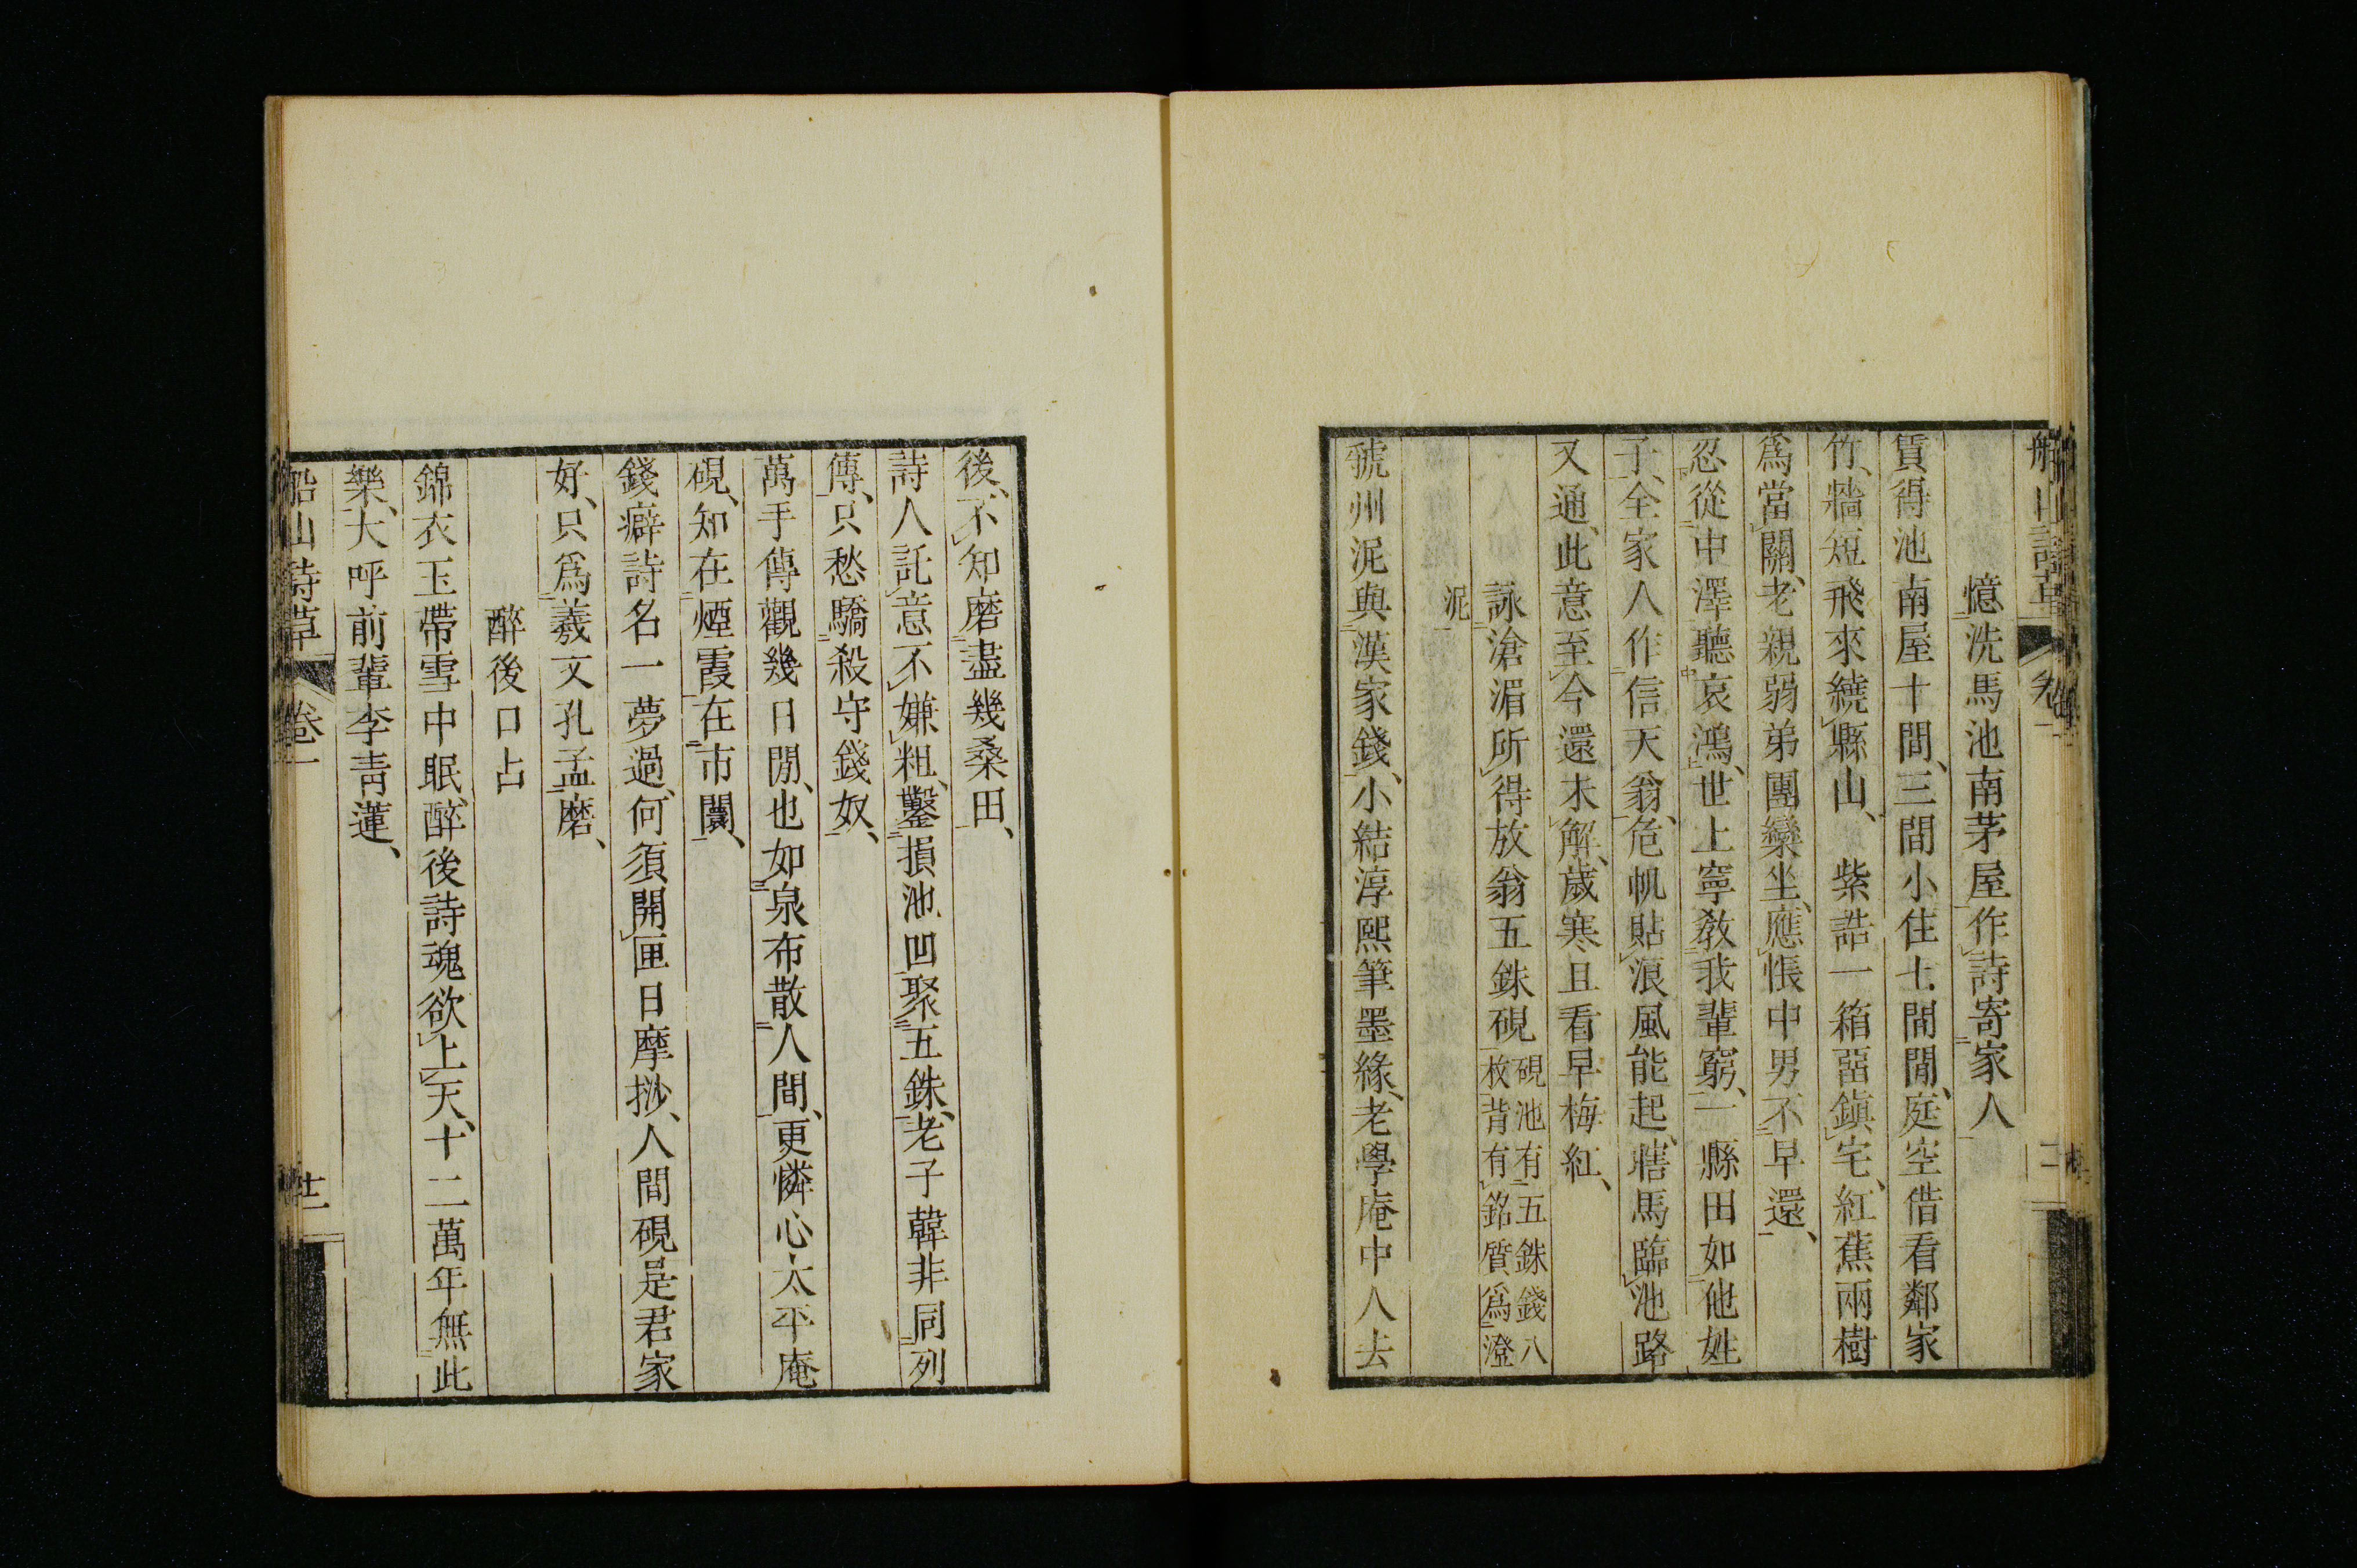 船山詩草 卷一
憶洗馬池南茅屋作詩寄家人
賃得池南屋十間、三間小住七間閒、庭空借看鄰家
竹、牆短飛來繞縣山、 紫誥一箱函鎭宅、紅蕉兩樹
爲當關、老親弱弟團欒坐、應悵中男不早還、
忍從中澤聽哀鴻、世上寧教我輩窮、一縣田如他姓
子、全家人作信天翁、危帆貼浪風能起、瞎馬臨池路
又通、此意至今還未解、歲寒且看早梅紅、
詠滄湄所得放翁五銖硯 硯池有五銖錢八
枚背有銘質爲澄
泥
虢州泥與漢家錢、小結淳熙筆墨緣、老學庵中人去
後、不知磨盡幾桑田、
詩人託意不嫌粗、鑿損池凹聚五銖、老子韓非同列
傳、只愁驕殺守錢奴、
萬手傳觀幾日閒、也如泉布散人間、更憐心太平庵
硯、知在煙霞在市闤、
錢癖詩名一夢過、何須開匣日摩挱、人間硯是君家
好、只爲羲文孔孟磨、
醉後口占
錦衣玉帶雪中眠、醉後詩魂欲上天、十二萬年無此
樂、大呼前輩李靑蓮、
船山詩草 卷一 十二